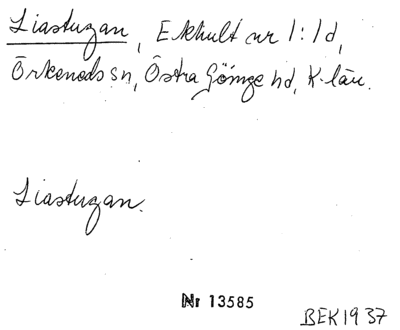 Liastugan, Ekhult nr 1:1d,
Örkeneds sn, Östra Göinge hd, K-län.
Liastugan.
Nr 13585
BEK1937